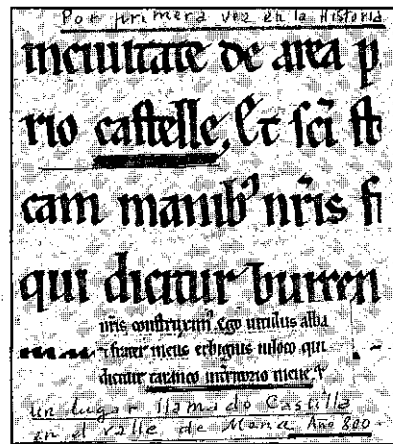 Por primera vez en la Historia
inciuitate de area p
rio castelle, Et sci st
cam manib' nr̄is fi
qui dicitur burren
nr̄is construxim', ego uitulus alba
frater meus eruigius inloco qui
dicitur taranco interritorio mene,
un lugar llamado Castilla
en el valle de Mena. Año 800-